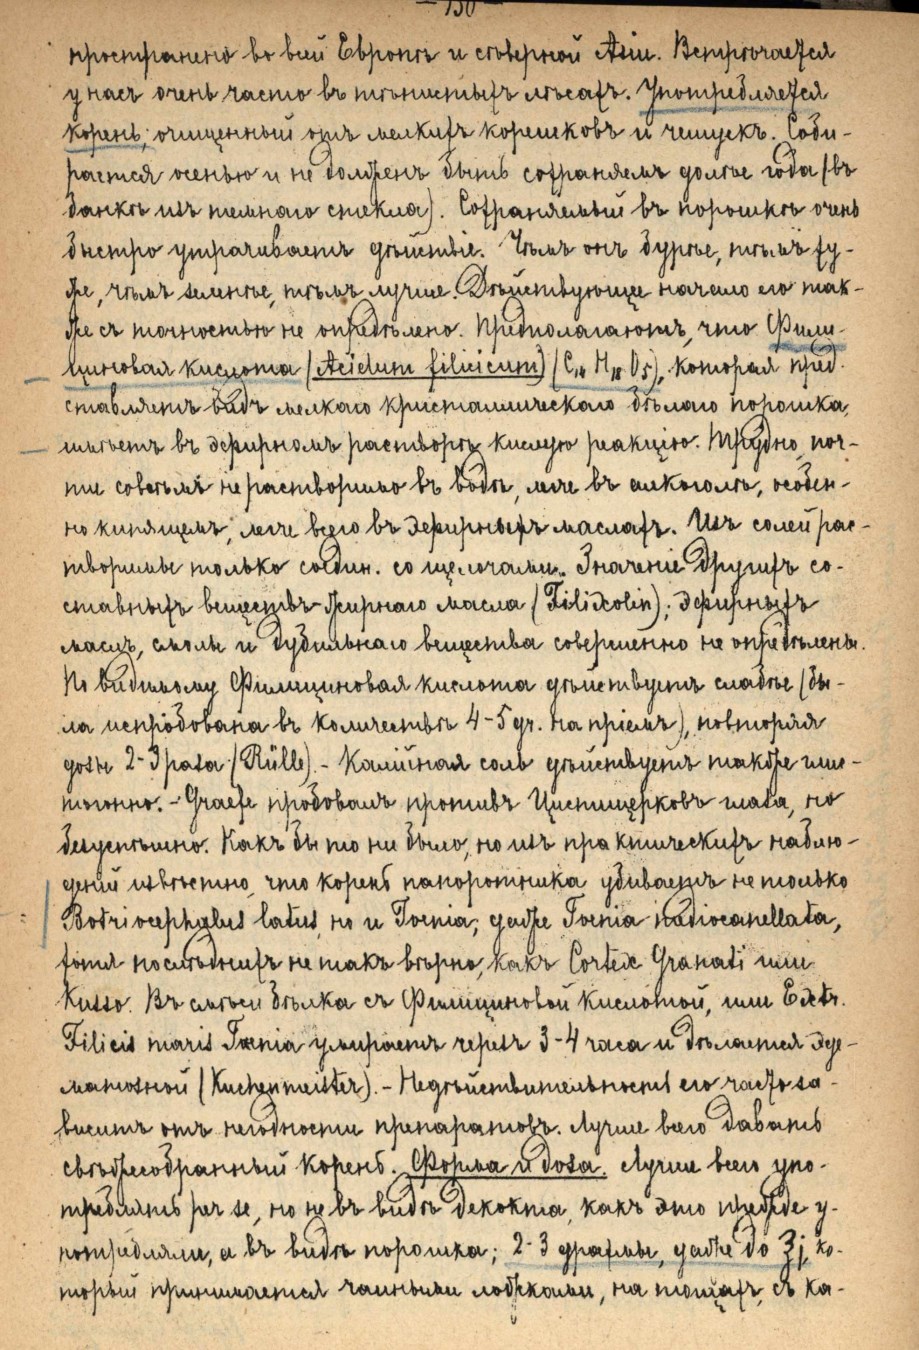 — 130 —
пространено во всей Европѣ и сѣверной Asiи. Встрѣчается
у насъ очень часто въ тѣнистыхъ лѣсахъ. Употребляется
корень, очищенный отъ мелкихъ корешковъ и чешуекъ. Соби-
рается осенью и не долженъ быть сохраняемъ долѣе года (въ
банкѣ изъ темнаго стекла). Сохраняемый въ порошкѣ очень
быстро утрачиваетъ дѣйствіе. Чѣмъ онъ бурѣе, тѣмъ ху-
же, чѣмъ зеленѣе, тѣмъ лучше. Дѣйствующее начало его так-
же съ точностью не опредѣлено. Предполагаютъ, что Фили-
циновая кислота (Acidum filicicum) (C₁₄ H₁₈ O₅), которая пред-
ставляетъ видъ мелкаго кристаллическаго бѣлаго порошка,
имѣетъ въ эфирномъ растворѣ кислую реакцію. Трудно, поч-
ти совсѣмъ не растворимо въ водѣ, легче въ алкоголѣ, особен-
но кипящемъ, легче всего въ эфирныхъ маслахъ. Изъ солей рас-
творимы только соедин. со щелочами. Значеніе другихъ со-
ставныхъ веществъ - жирнаго масла (Filixolin), эфирныхъ
маслъ, смолы и дубильнаго вещества совершенно не опредѣлены.
По видимому Филициновая кислота дѣйствуетъ слабѣе (бы-
ла испробована въ количествѣ 4-5 gr. на пріемъ), повторяя
дозы 2-3 раза (Rülle). - Калійная соль дѣйствуетъ также ник-
тожно. - Graefe пробовалъ противъ Цистицерковъ глаза, но
безуспѣшно. Какъ бы то ни было, но изъ практическихъ наблю-
деній извѣстно, что корень папоротника убиваетъ не только
Botriocephalus latus, но и Toenia, даже Toenia mediocanellata,
хотя послѣднихъ не такъ вѣрно, какъ Cortex Granati или
Kusso. Въ смѣси бѣлка съ Филициновой кислотой, или Extr.
Filicis maris Tænia умираетъ черезъ 3-4 часа и дѣлается эде-
матозной (Kuchenmeister). - Недѣйствительность его часто за-
виситъ отъ негодности препаратовъ. Лучше всего давать
свѣжесобранный корень. Форма и доза. Лучше всего упо-
треблять per se, но не въ видѣ декокта, какъ это прежде у-
потребляли, а въ видѣ порошка; 2-3 драхмы, даже до ℥j, ко-
торый принимается чайными ложками, на тощахъ, съ ка-